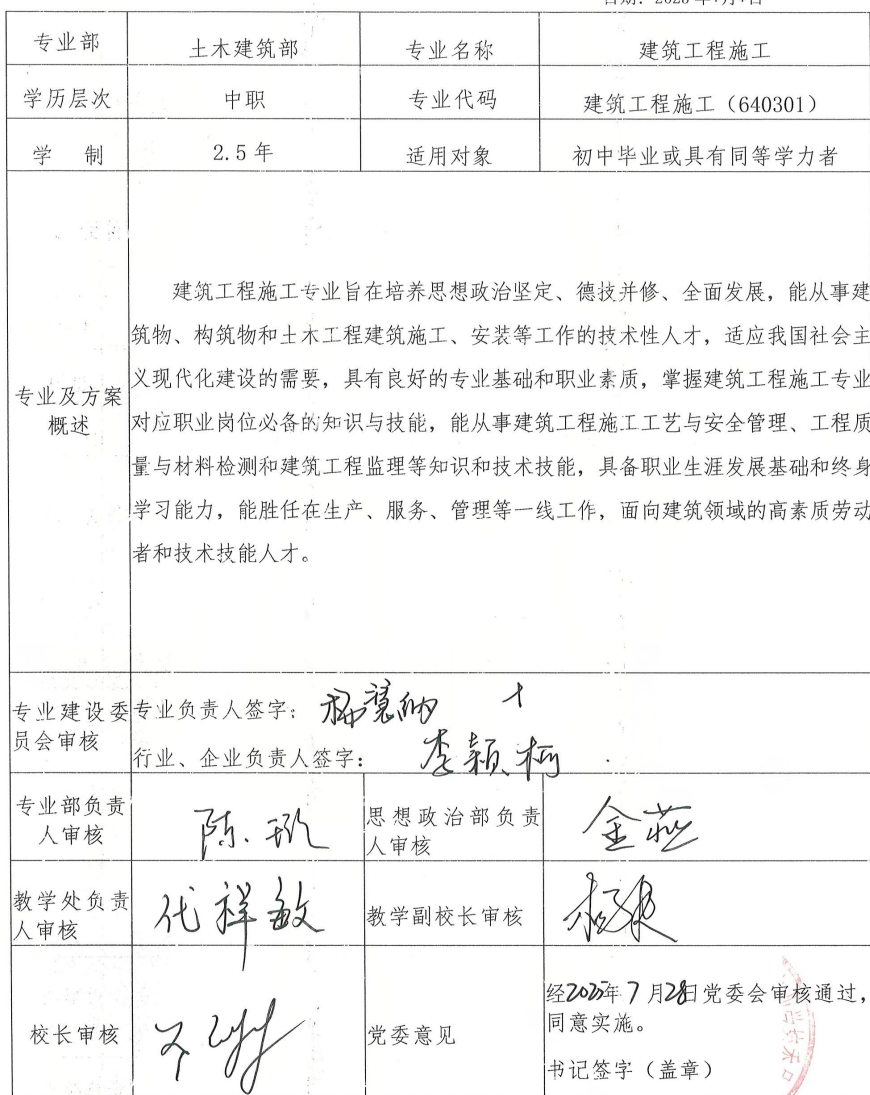 专业部 土木建筑部 专业名称 建筑工程施工
学历层次 中职 专业代码 建筑工程施工（640301）
学 制 2.5 年 适用对象 初中毕业或具有同等学力者
专业及方案
概述
建筑工程施工专业旨在培养思想政治坚定、德技并修、全面发展，能从事建
筑物、构筑物和土木工程建筑施工、安装等工作的技术性人才，适应我国社会主
义现代化建设的需要，具有良好的专业基础和职业素质，掌握建筑工程施工专业
对应职业岗位必备的知识与技能，能从事建筑工程施工工艺与安全管理、工程质
量与材料检测和建筑工程监理等知识和技术技能，具备职业生涯发展基础和终身
学习能力，能胜任在生产、服务、管理等一线工作，面向建筑领域的高素质劳动
者和技术技能人才。
专业建设委
员会审核
专业负责人签字：
行业、企业负责人签字： 李颖柯
专业部负责
人审核
陈
思想政治部负责
人审核
金燕
教学处负责
人审核
代祥敏
教学副校长审核
校长审核
党委意见
经2025年 7 月28日党委会审核通过，
同意实施。
书记签字（盖章）